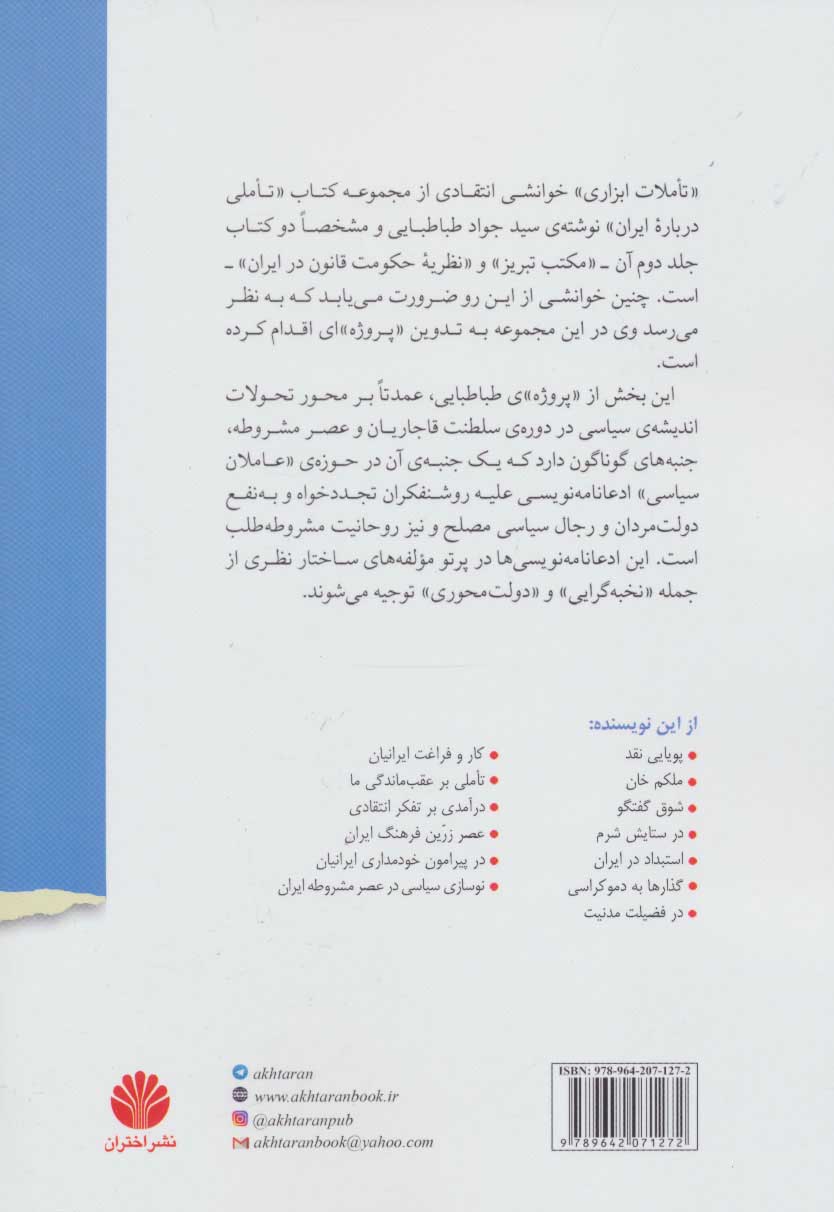 «تأملات ابزاری» خوانشی انتقادی از مجموعه کتاب «تأملی
دربارهٔ ایران» نوشته‌ی سید جواد طباطبایی و مشخصاً دو کتاب
جلد دوم آن ـ «مکتب تبریز» و «نظریهٔ حکومت قانون در ایران» ـ
است. چنین خوانشی از این رو ضرورت می‌یابد که به نظر
می‌رسد وی در این مجموعه به تدوین «پروژه»ای اقدام کرده
است.
این بخش از «پروژه»ی طباطبایی، عمدتاً بر محور تحولات
اندیشه‌ی سیاسی در دوره‌ی سلطنت قاجاریان و عصر مشروطه،
جنبه‌های گوناگون دارد که یک جنبه‌ی آن در حوزه‌ی «عاملان
سیاسی» ادعانامه‌نویسی علیه روشنفکران تجددخواه و به‌نفع
دولت‌مردان و رجال سیاسی مصلح و نیز روحانیت مشروطه‌طلب
است. این ادعانامه‌نویسی‌ها در پرتو مؤلفه‌های ساختار نظری از
جمله «نخبه‌گرایی» و «دولت‌محوری» توجیه می‌شوند.
از این نویسنده:
• پویایی نقد
• ملکم خان
• شوق گفتگو
• در ستایش شرم
• استبداد در ایران
• گذارها به دموکراسی
• در فضیلت مدنیت
• کار و فراغت ایرانیان
• تأملی بر عقب‌ماندگی ما
• درآمدی بر تفکر انتقادی
• عصر زرّین فرهنگ ایران
• در پیرامون خودمداری ایرانیان
• نوسازی سیاسی در عصر مشروطه ایران
نشر اختران
akhtaran
www.akhtaranbook.ir
@akhtaranpub
akhtaranbook@yahoo.com
ISBN: 978-964-207-127-2
9 789642 071272